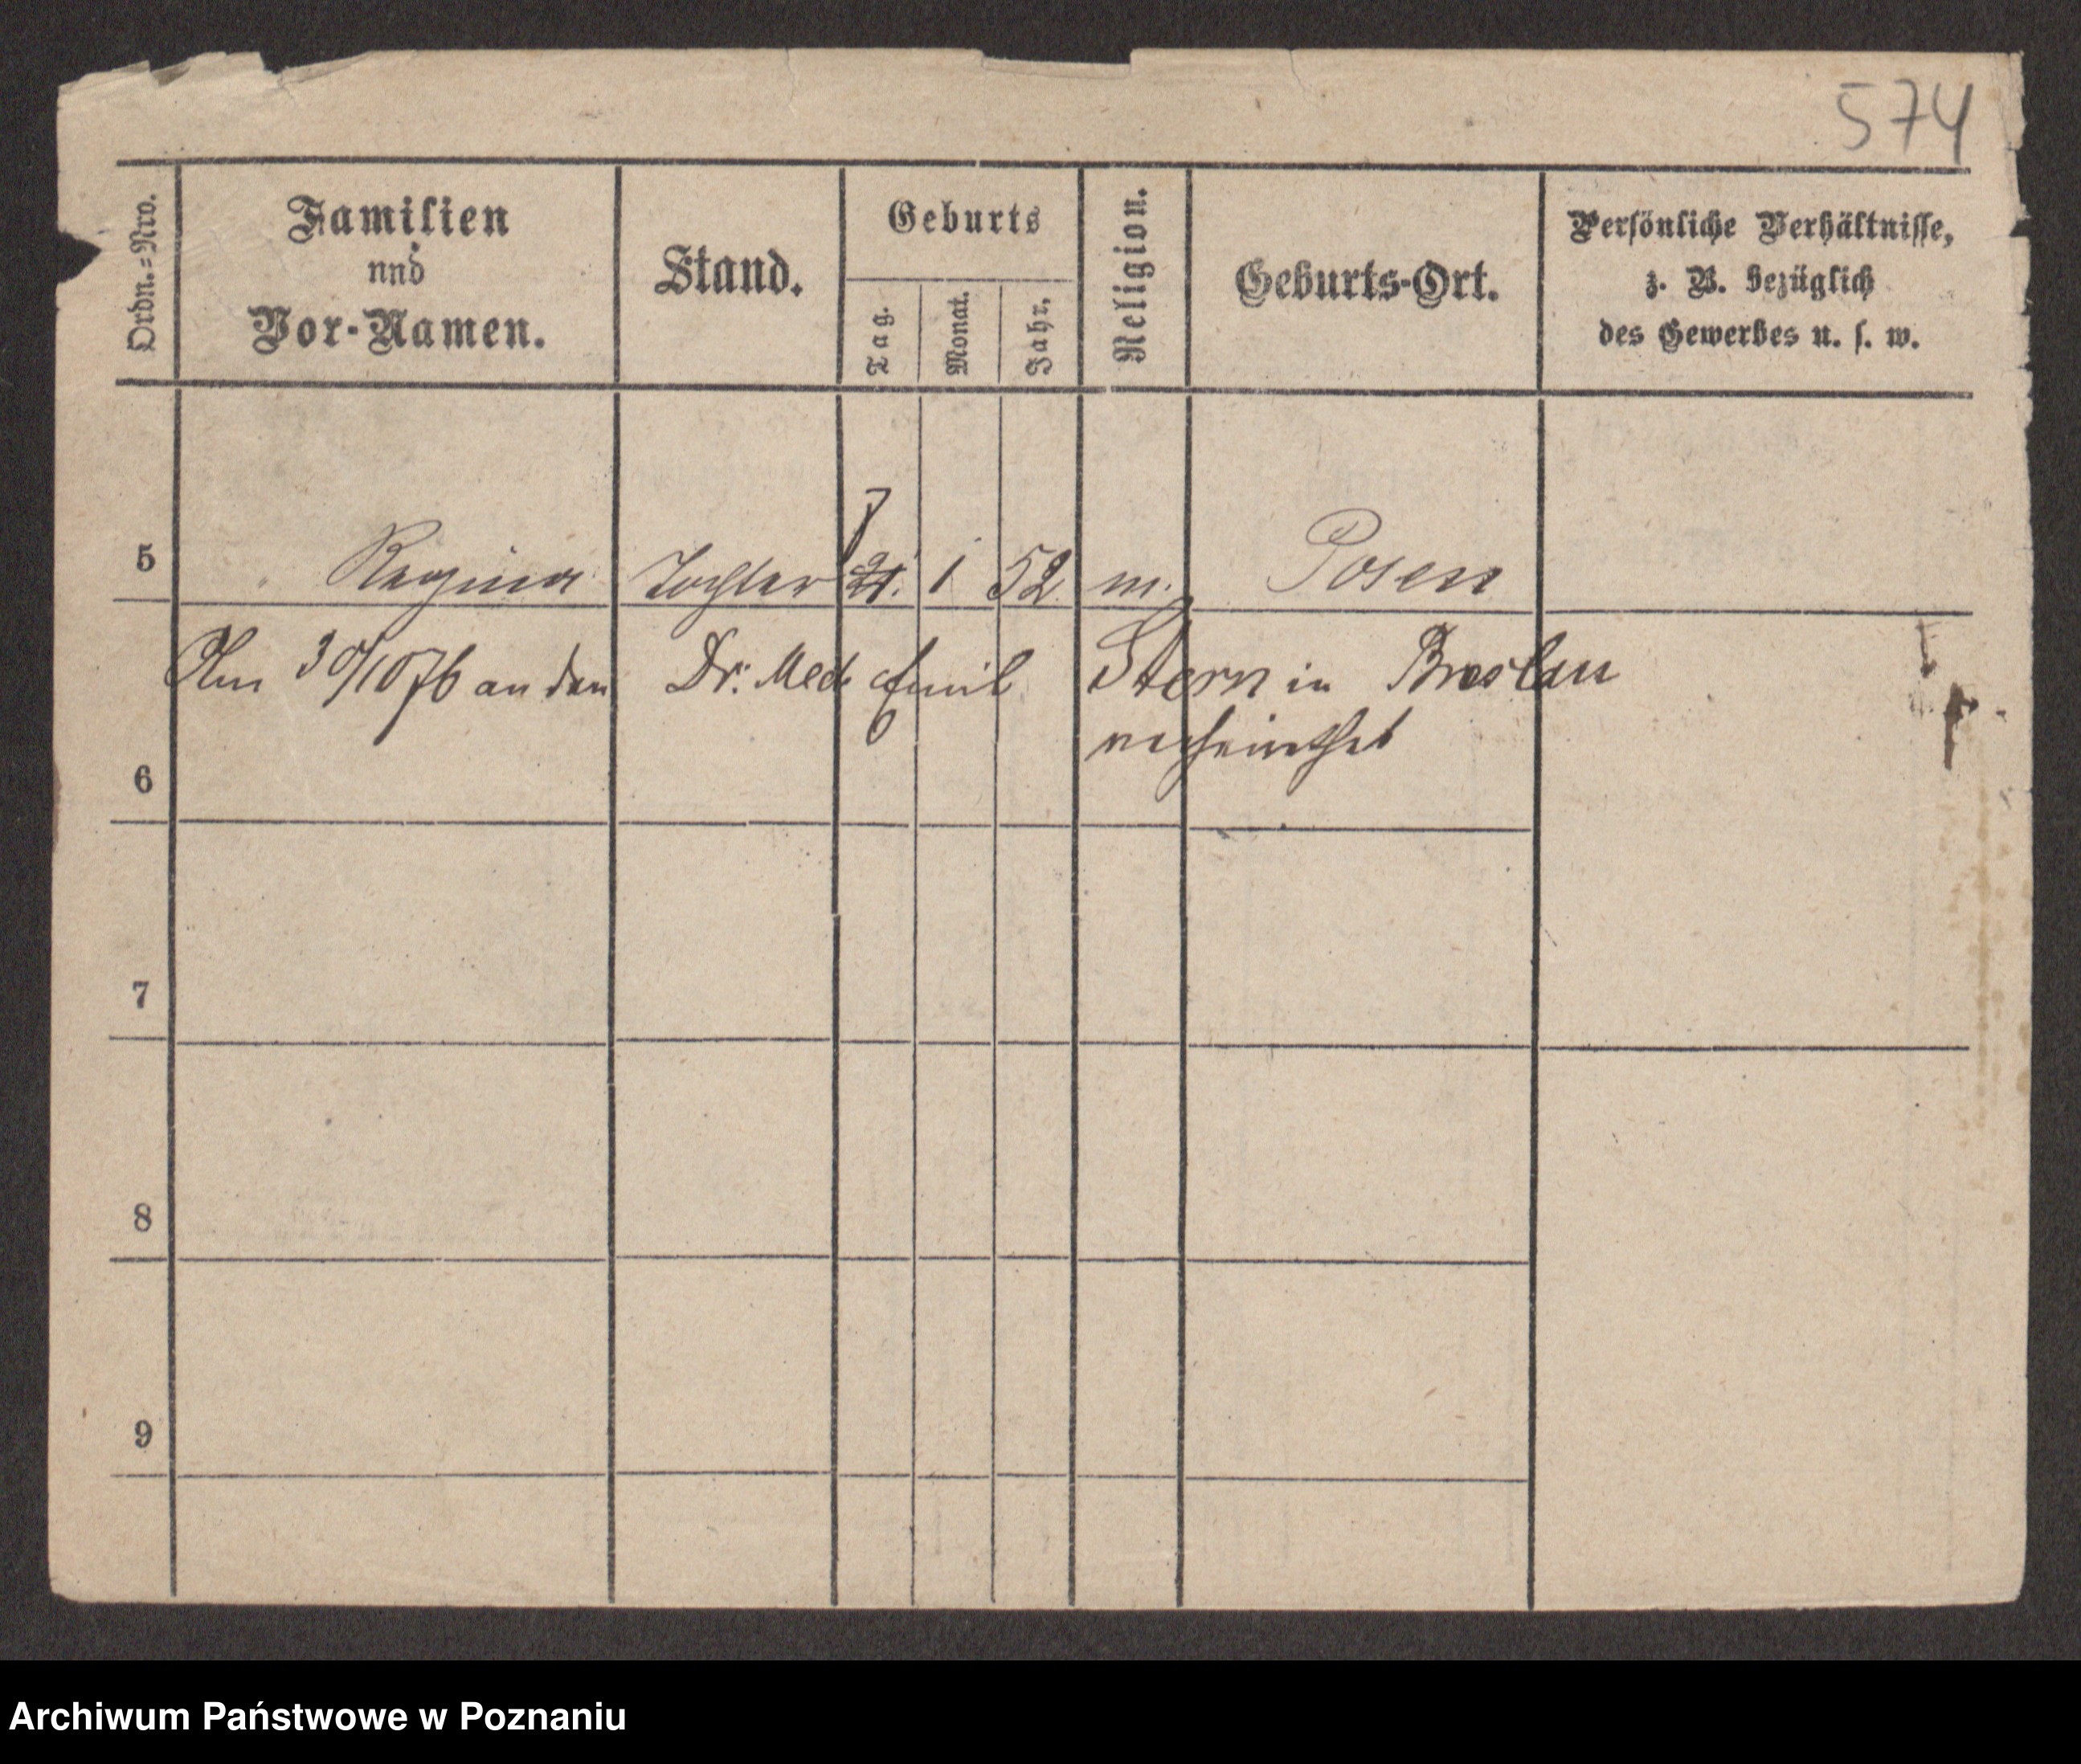 574
Ordn.=Nro.
Familien
und
Vor-Namen.
Stand.
Geburts
Tag.
Monat.
Jahr.
Religion.
Geburts-Ort.
Persönliche Verhältnisse,
z. B. bezüglich
des Gewerbes u. s. w.
7
5 Regina Tochter 21. 1 52 m. Posen
Am 30/10 76 an den Dr. Med. Emil Stern in Breslau
verheirathet
6
7
8
9
Archiwum Państwowe w Poznaniu